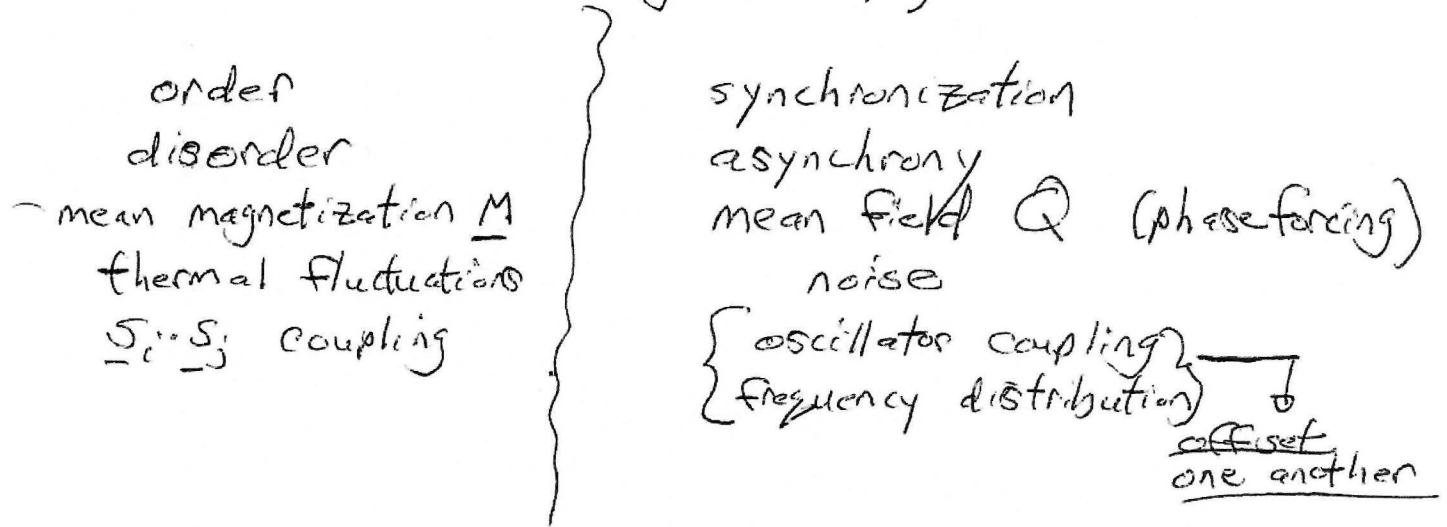 order
disorder
mean magnetization M
thermal fluctuations
S_i · S_j coupling
synchronization
asynchrony
mean field Q (phase forcing)
noise
oscillator coupling
frequency distribution
offset
one another